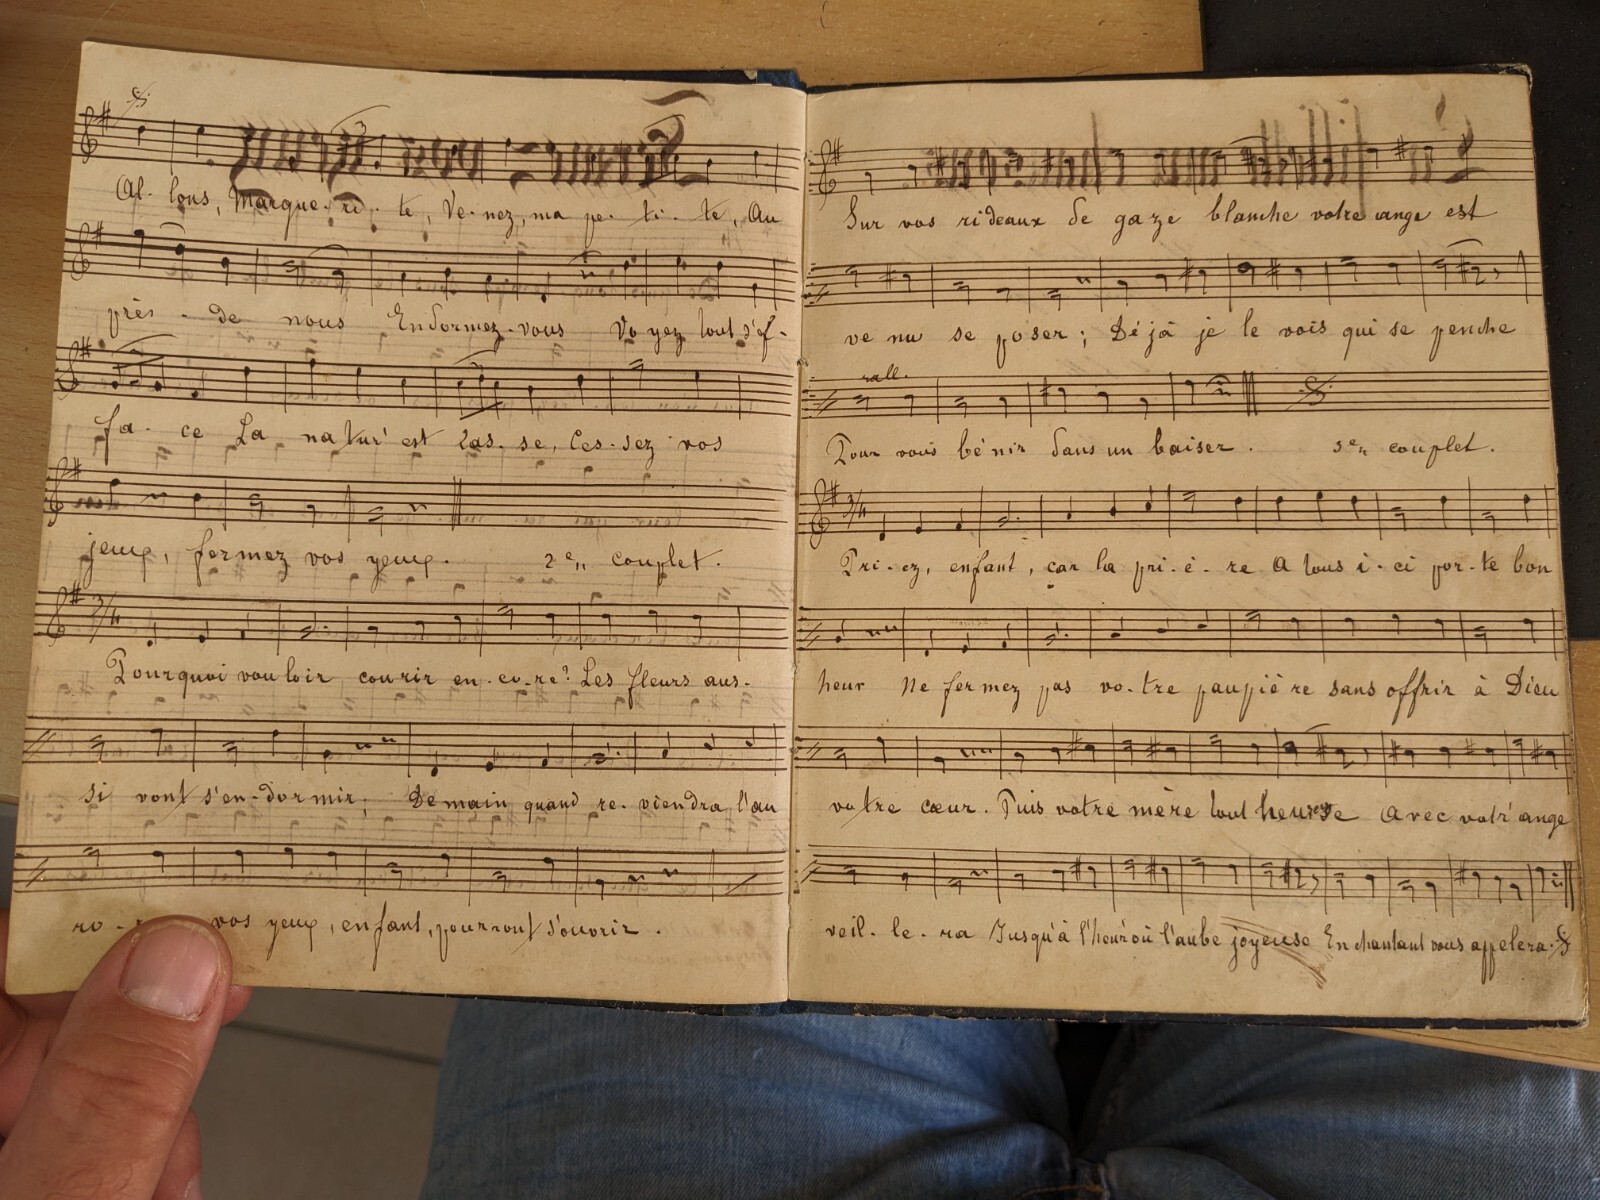 Al- lons, Margue- ri- te, Ve- nez, ma pe- ti- te, Au
près - de nous Endormez-vous Vo yez tout s'ef-
fa- ce La natur' est las- se, Ces- sez vos
jeux, fermez vos yeux. 2e couplet.
3/4
Pourquoi vouloir courir en-co-re? Les fleurs aus-
si vont s'en-dormir; Demain quand re-viendra l'au
ro- vos yeux, enfant, pourront s'ouvrir.
Sur vos rideaux de gaze blanche votre ange est
ve nu se poser; Déjà je le vois qui se penche
rall.
Pour vous bénir dans un baiser. 3e couplet.
3/4
Pri-ez, enfant, car la pri-è-re A tous i-ci por-te bon
heur Ne fermez pas vo-tre paupiè re sans offrir à Dieu
votre cœur. Puis votre mère tout heurse Avec votr' ange
veil-le-ra Jusqu'à l'heur' où l'aube joyeuse En chantant vous appelera.